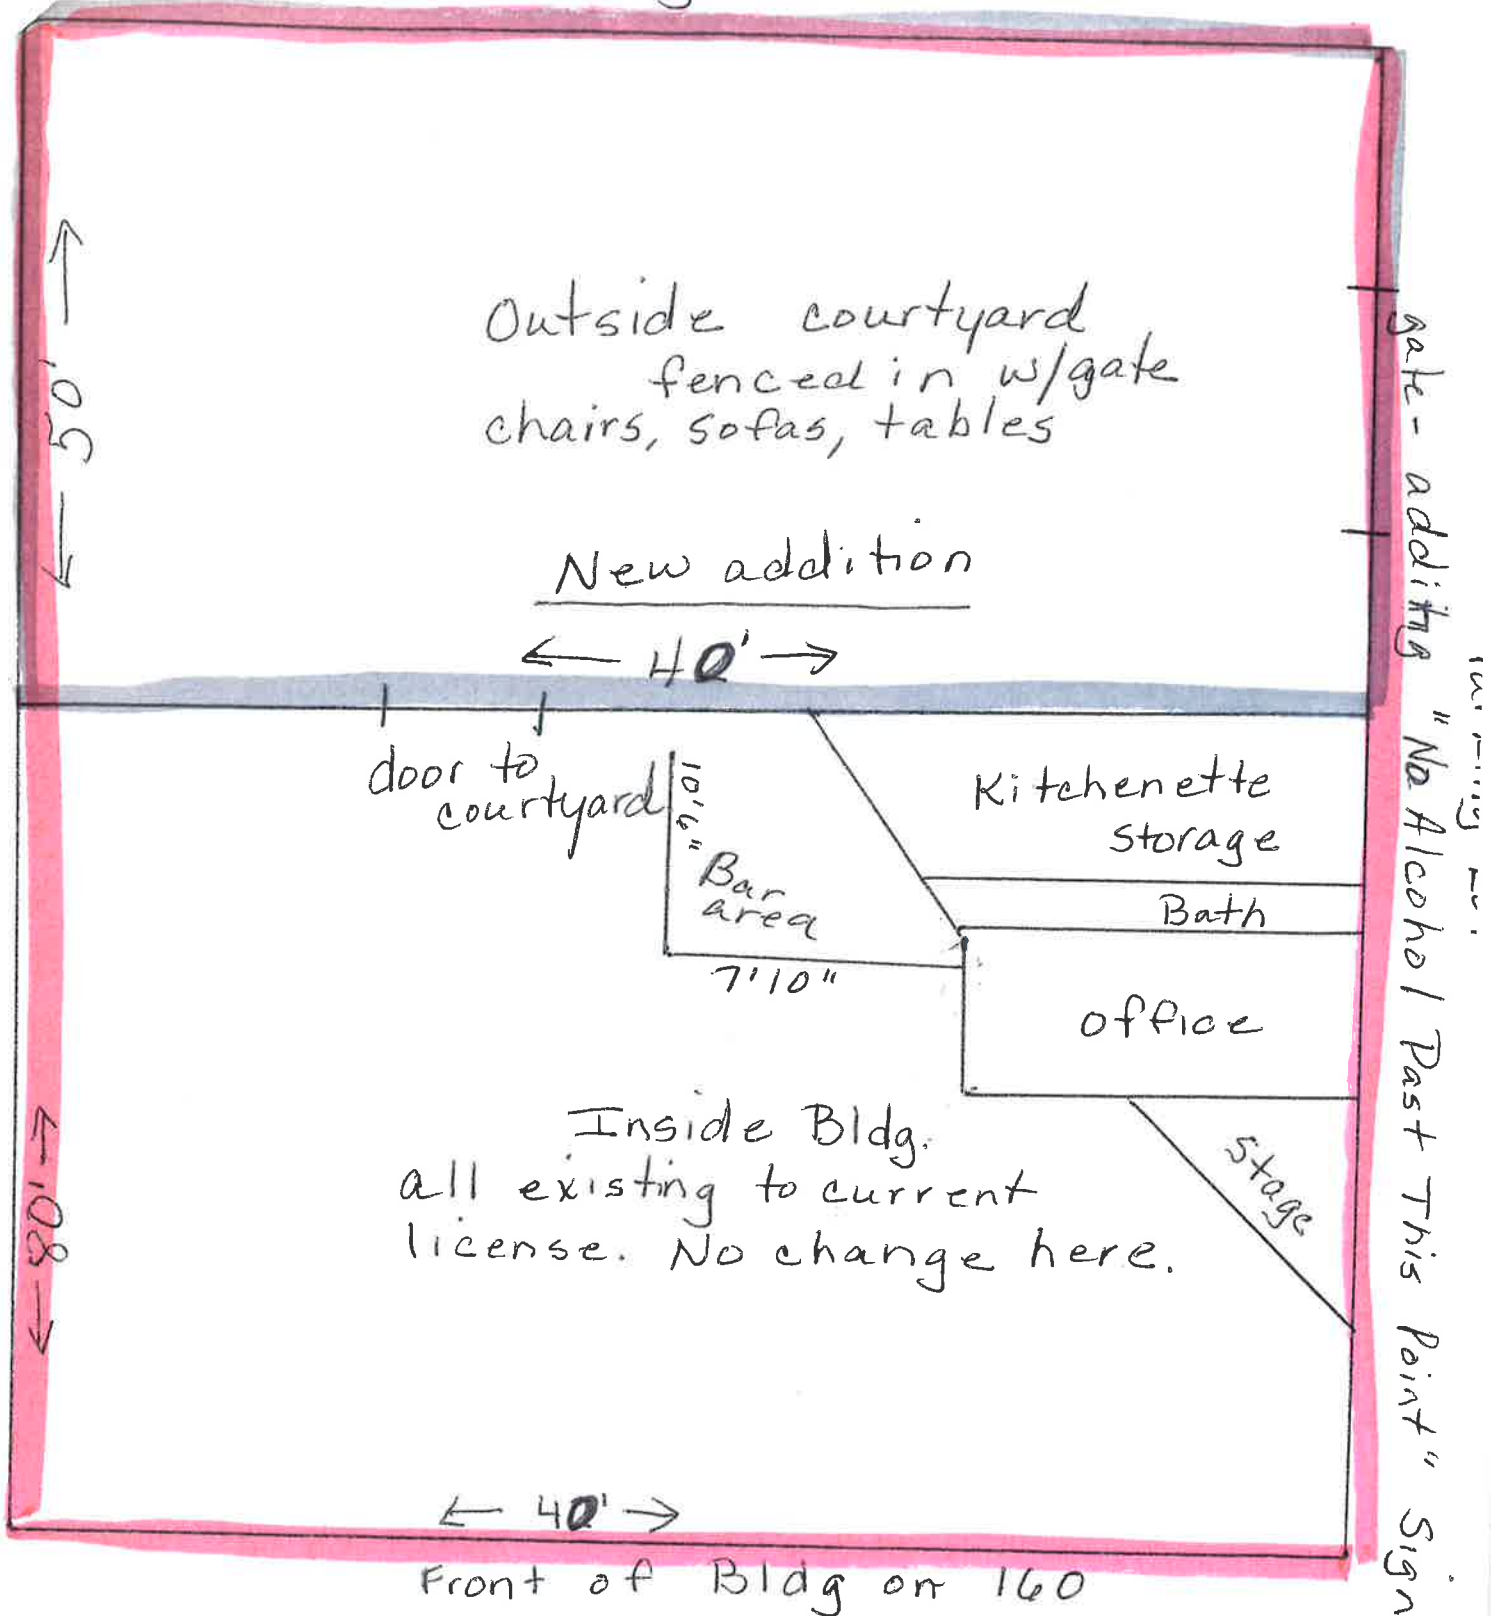 ← 50' →
Outside courtyard
fenced in w/gate
chairs, sofas, tables
New addition
← 40' →
gate - adding "No Alcohol Past This Point" Sign
door to
courtyard
10'6"
Bar
area
7'10"
Kitchenette
storage
Bath
office
Stage
Inside Bldg.
all existing to current
license. No change here.
← 80' →
← 40' →
Front of Bldg on 160